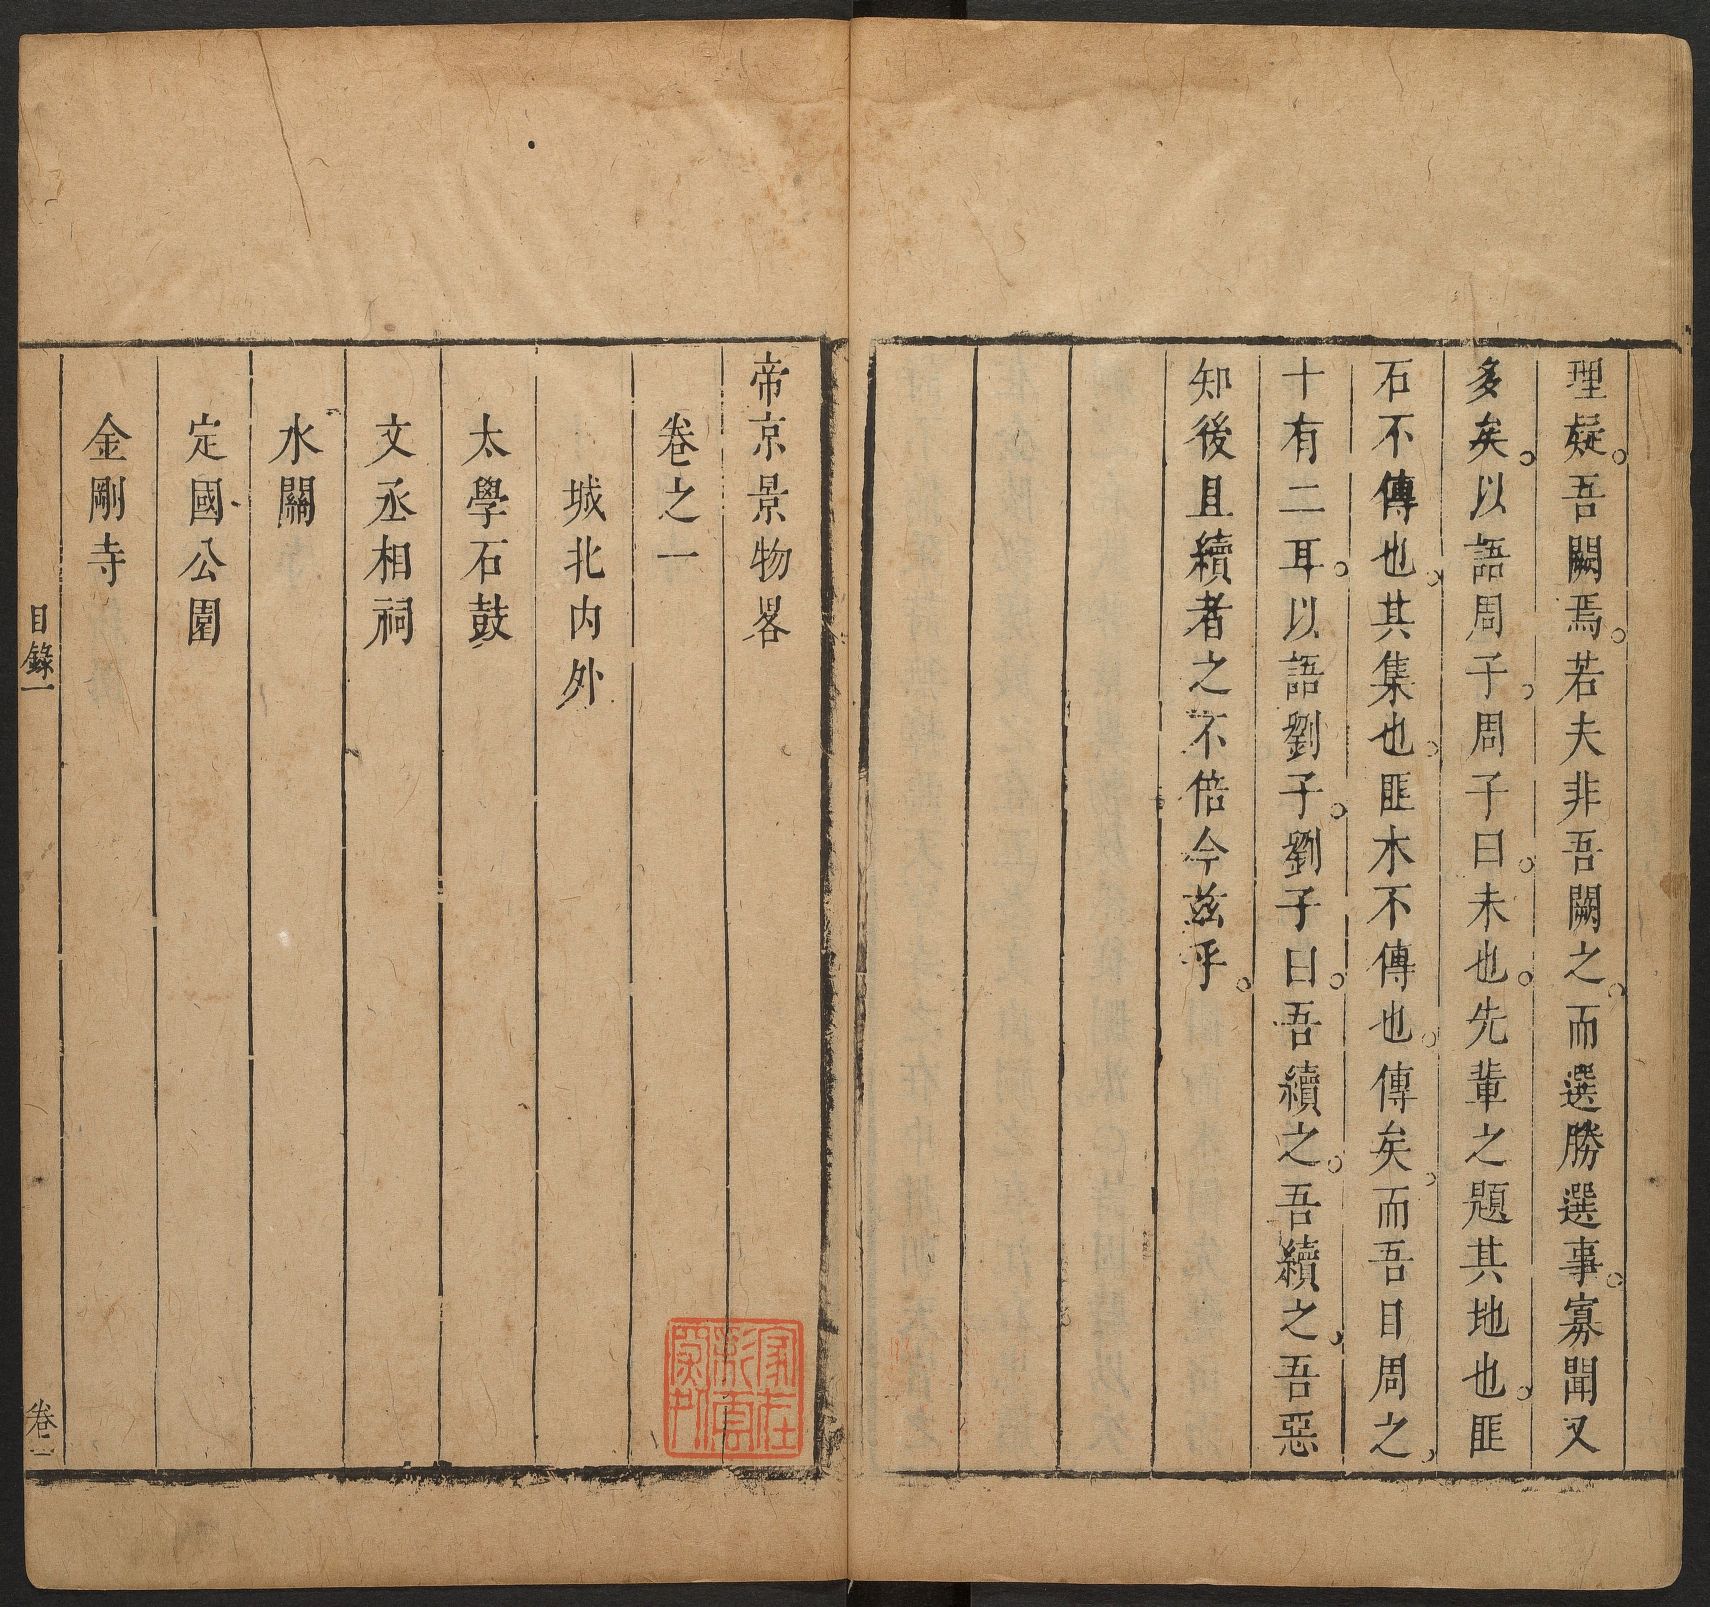 理疑。吾闕焉。若夫非吾闕之。而選勝選事。寡聞又
多矣。以語周子。周子曰。未也。先輩之題其地也。匪
石不傳也。其集也。匪木不傳也。傳矣。而吾目周之、
十有二耳。以語劉子。劉子曰。吾續之。吾續之、吾惡
知後且續者之不倍今茲乎。
帝京景物畧
卷之一
城北内外
太學石鼓
文丞相祠
水關
定國公園
金剛寺
目錄一
卷一
家在
彩雲